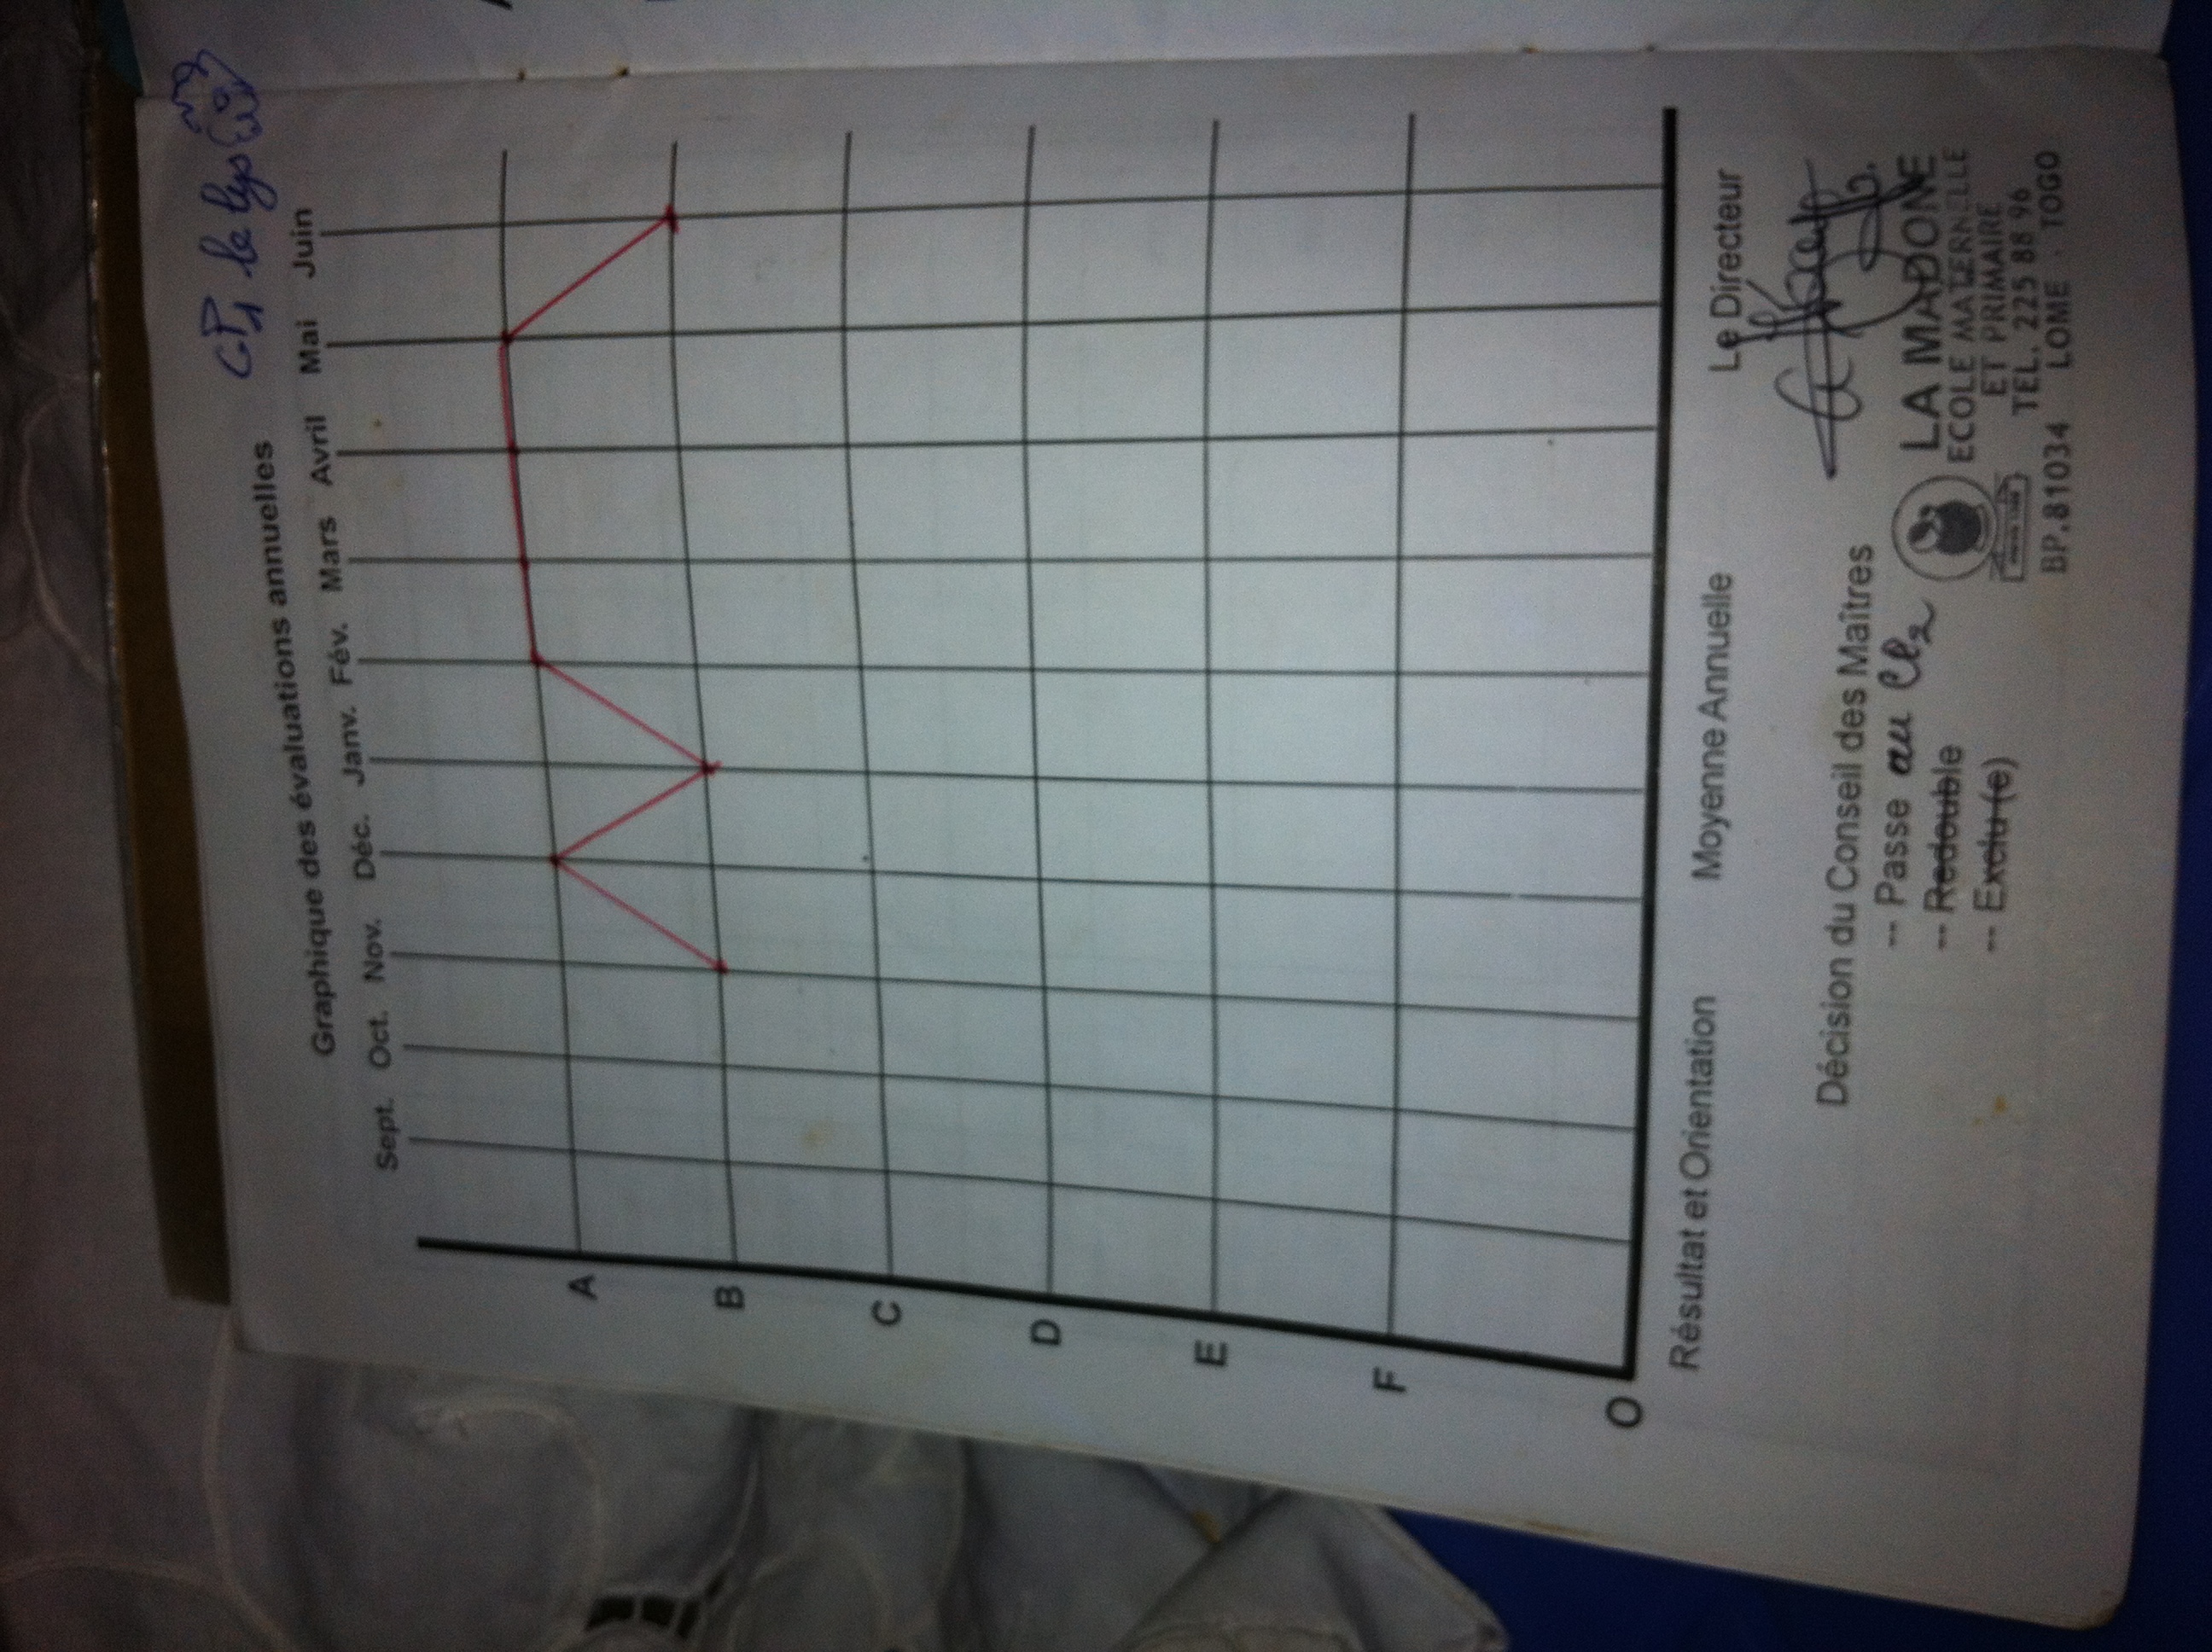 CP1 le lys
Graphique des évaluations annuelles
Sept. Oct. Nov. Déc. Janv. Fév. Mars Avril Mai Juin
A
B
C
D
E
F
O
Résultat et Orientation Moyenne Annuelle Le Directeur
Décision du Conseil des Maîtres
-- Passe au CP2
-- Redouble
-- Exclu (e)
LA MADONE
ECOLE MATERNELLE
ET PRIMAIRE
TEL. 225 88 96
BP.81034 LOME - TOGO